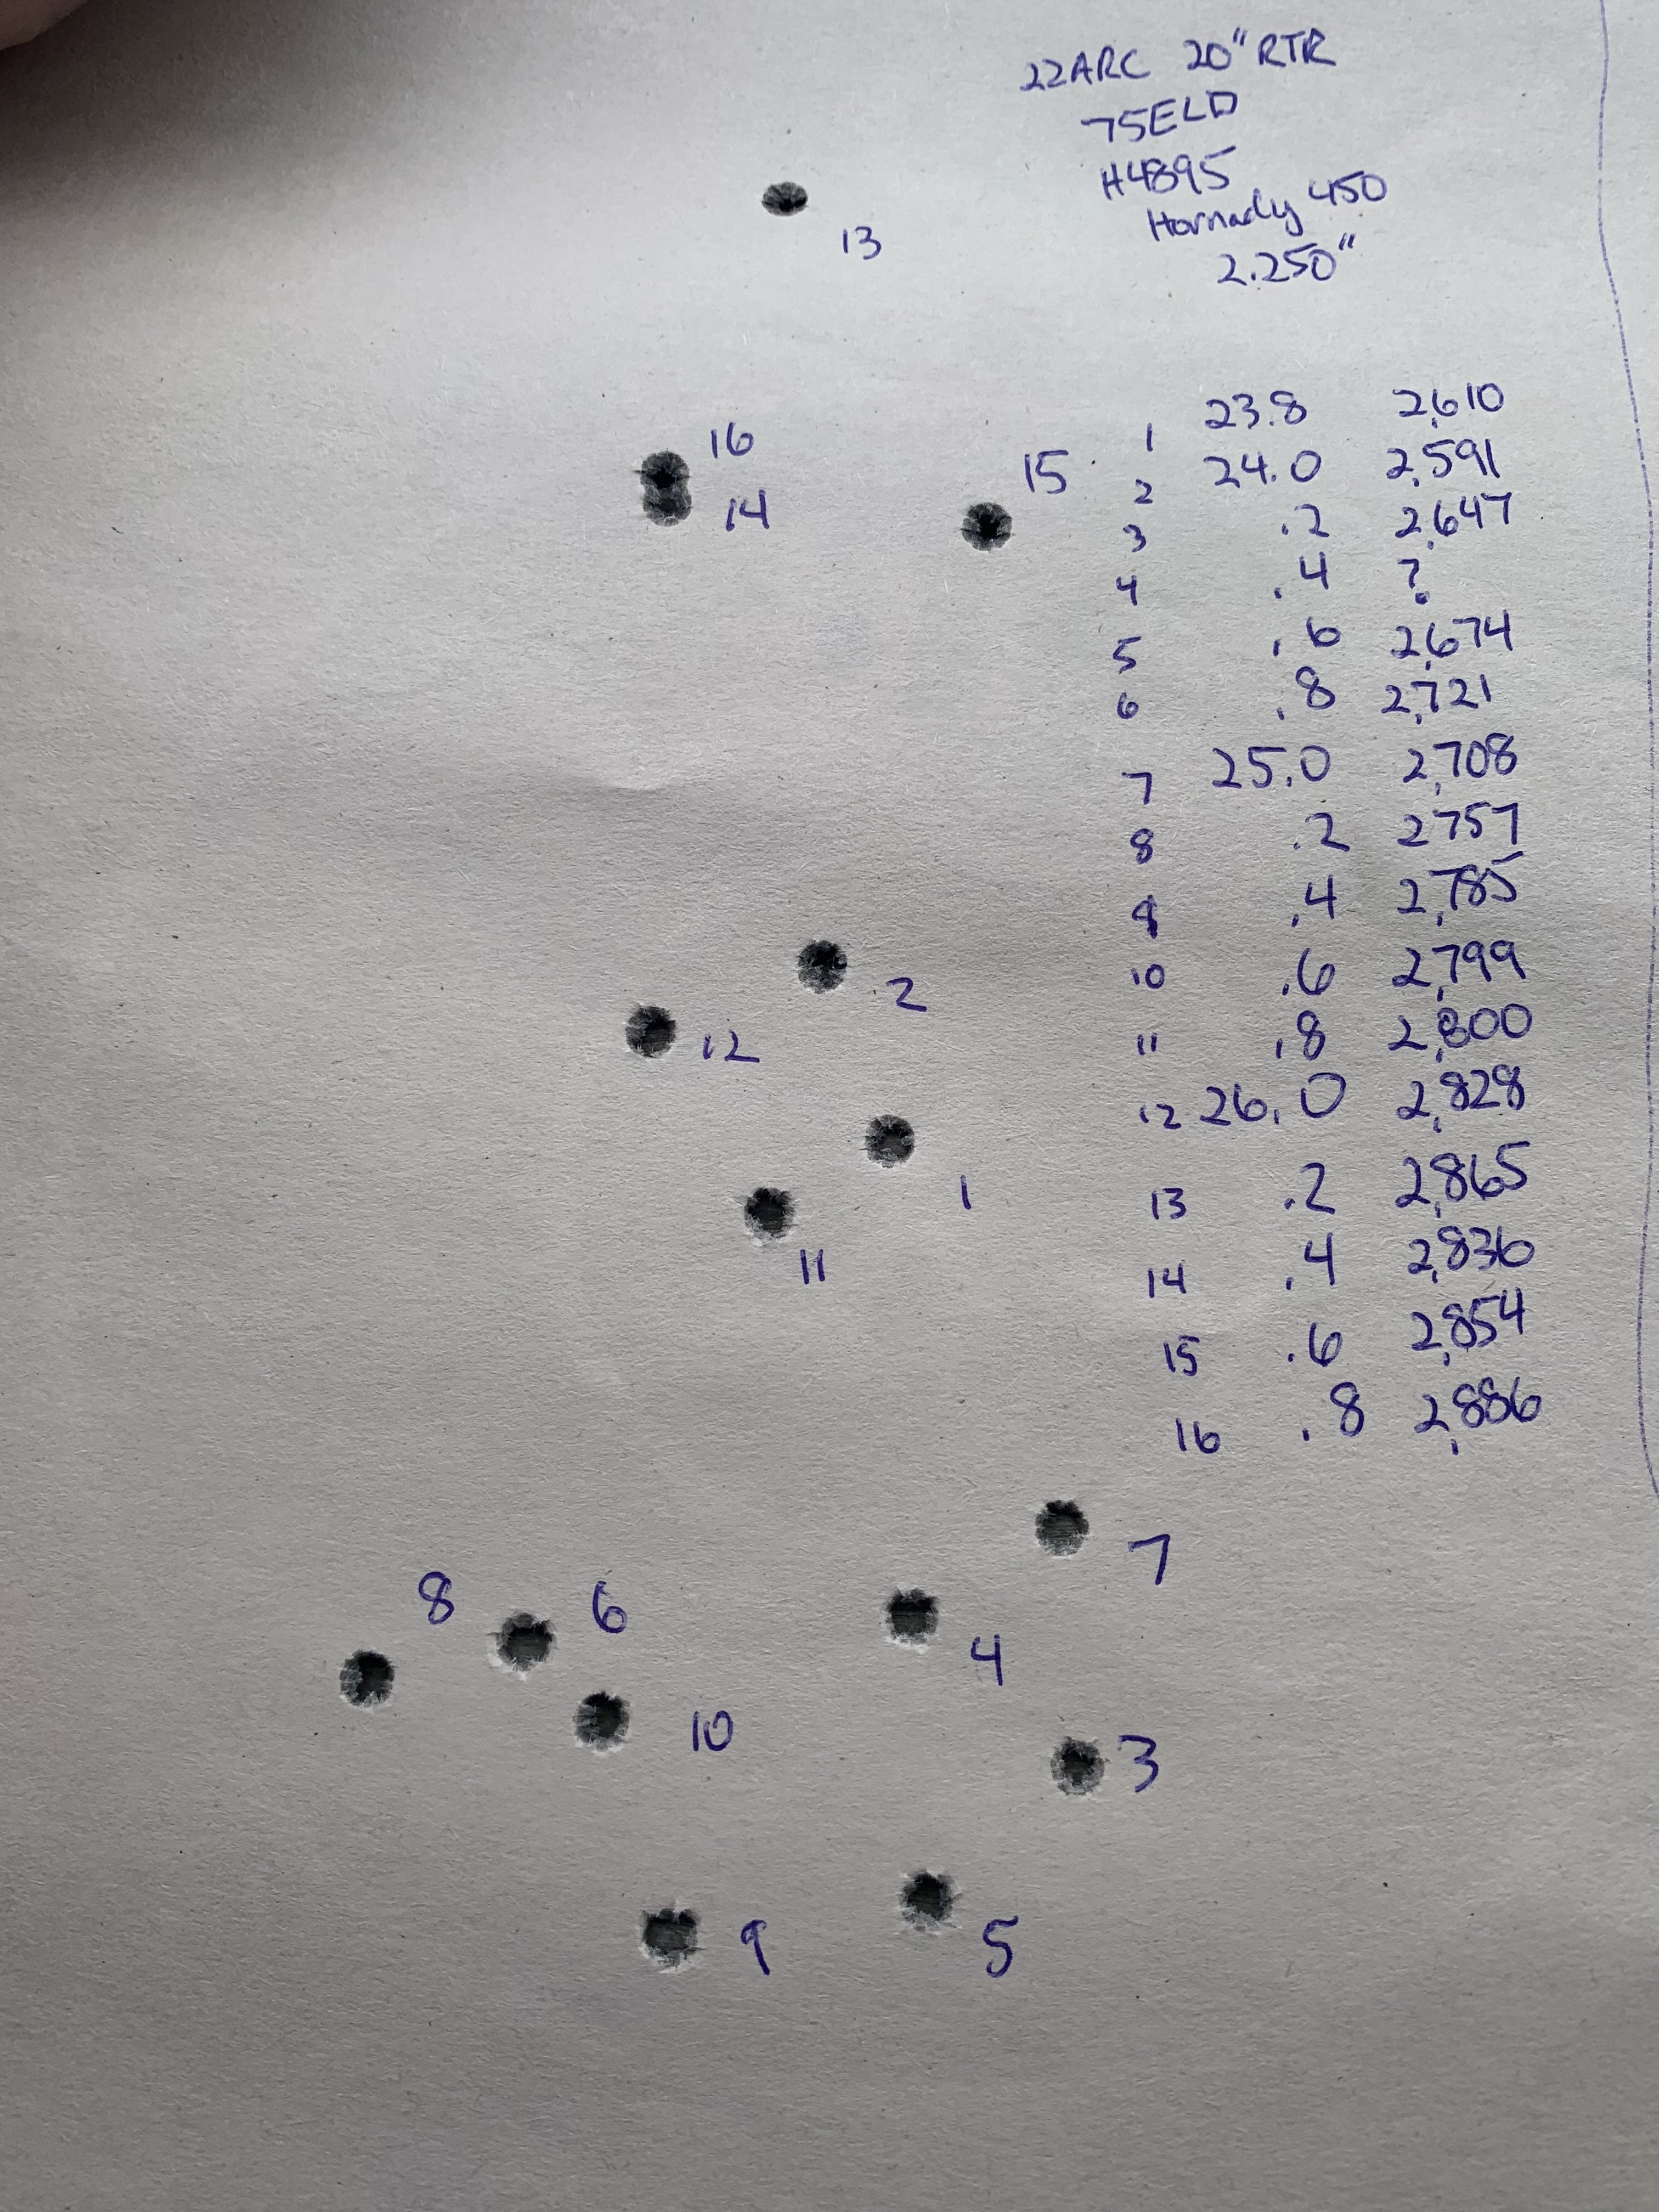 22ARC 20" RTR
75ELD
H4895
Hornady 450
2.250"
13
16
14
15
1 23.8 2,610
2 24.0 2,591
3 .2 2,647
4 .4 ?
5 .6 2,674
6 .8 2,721
7 25.0 2,708
8 .2 2757
9 .4 2,785
10 .6 2,799
11 .8 2,800
12 26.0 2,828
13 .2 2,865
14 .4 2,836
15 .6 2,854
16 .8 2,886
2
12
1
11
7
8
6
4
10
3
9
5